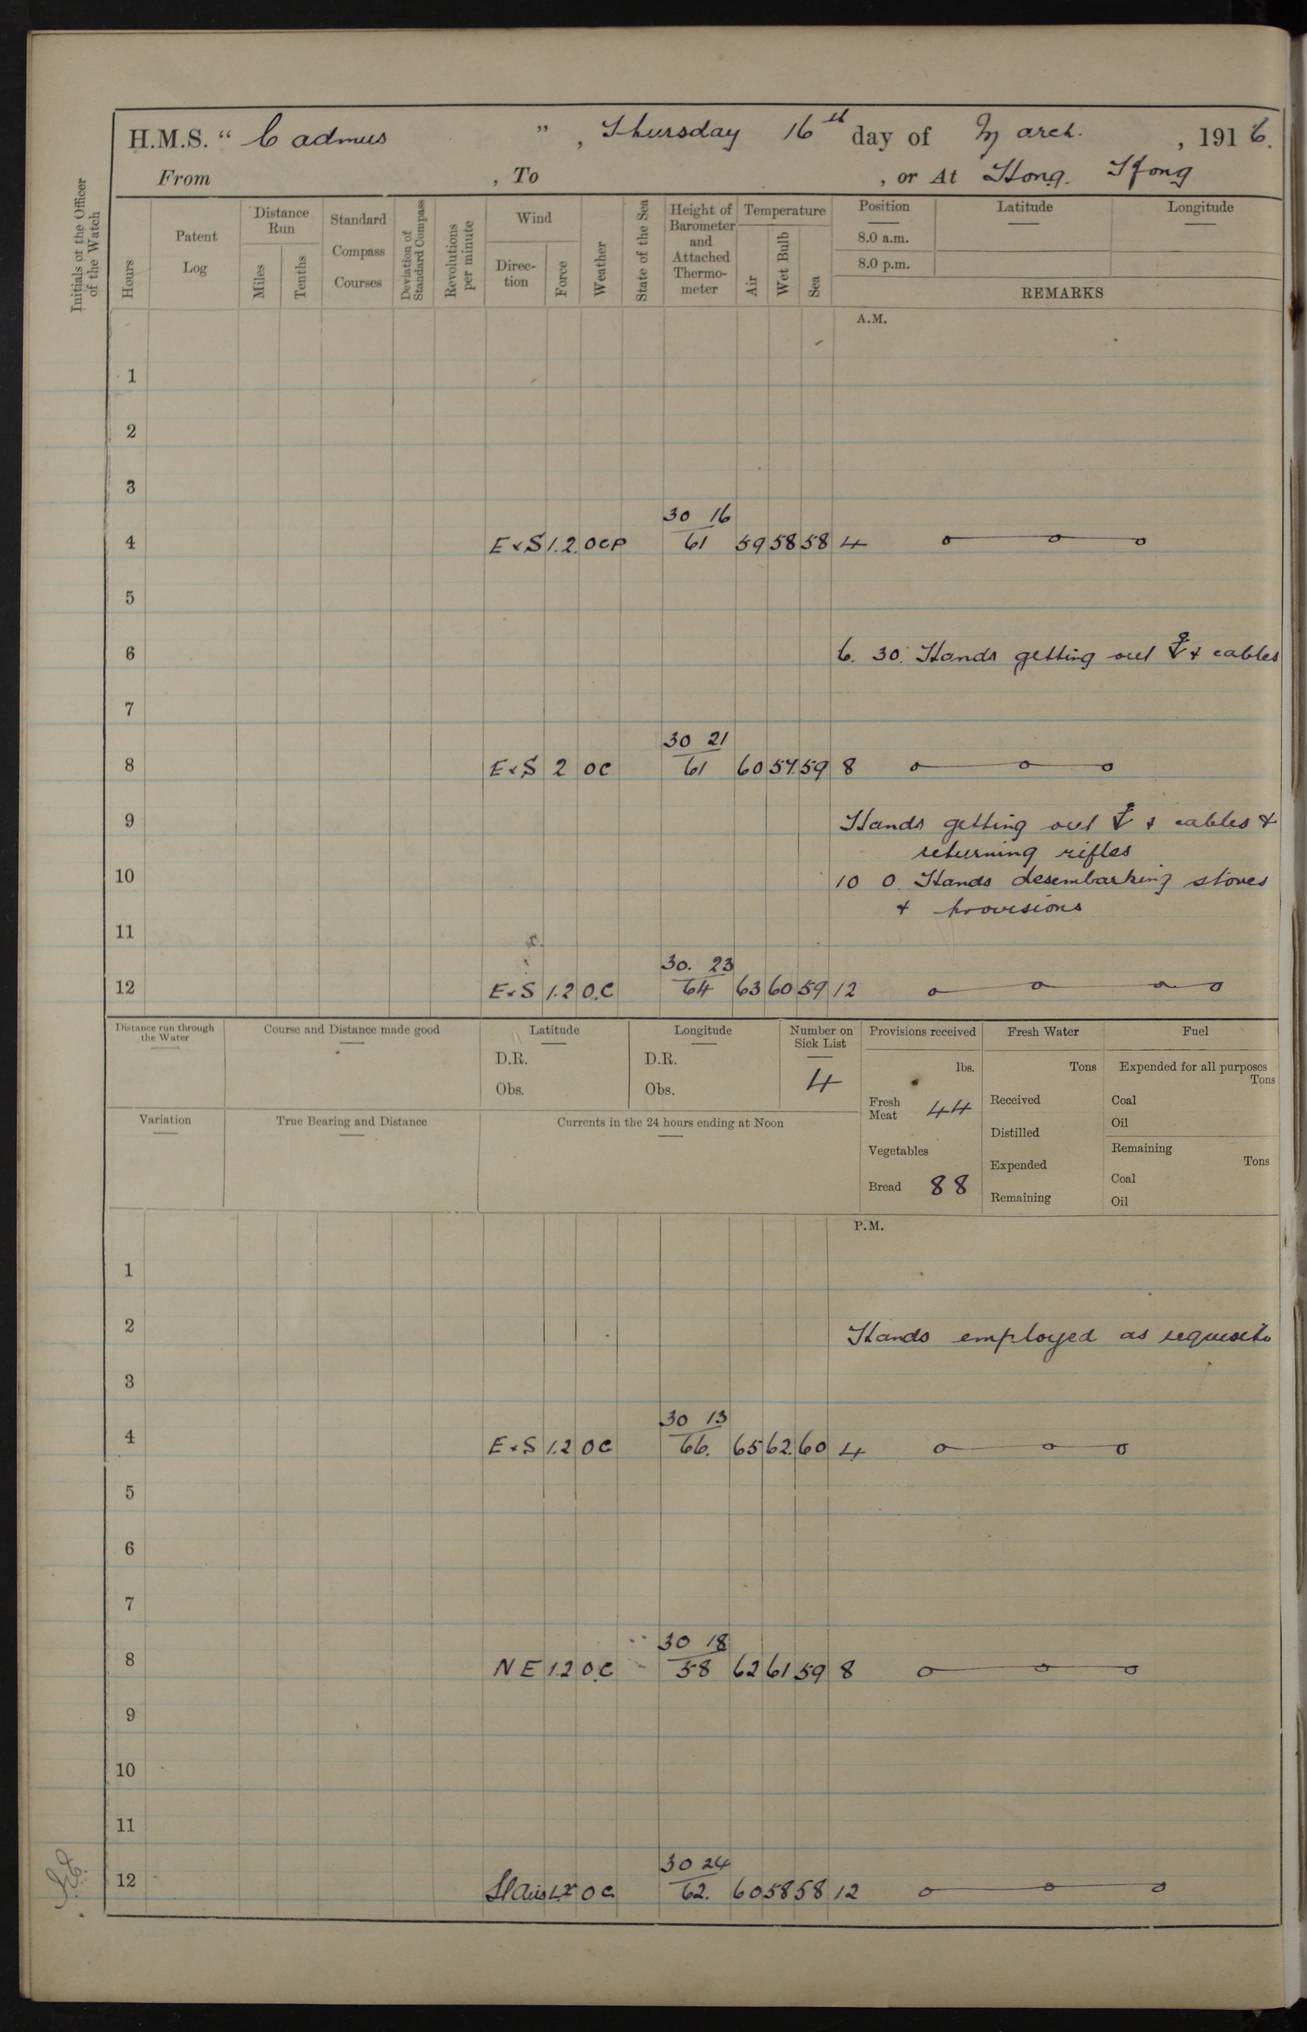 H.M.S. “ Cadmus ” , Thursday 16th day of March. , 1916.
From , To , or At Hong. Kong
Initials of the Officer of the Watch
Hours
Patent Log
Distance Run
Miles
Tenths
Standard Compass Courses
Deviation of Standard Compass
Revolutions per minute
Wind
Direction
Force
Weather
State of the Sea
Height of Barometer and Attached Thermometer
Temperature
Air
Wet Bulb
Sea
Position Latitude Longitude
8.0 a.m.
8.0 p.m.
REMARKS
A.M.
1
2
3
30 16
4 E x S 1.2. OCP 61 59 58 58 4
5
6 6. 30. Hands getting out & cables
7
30 21
8 E x S 2 OC 61 60 57 59 8
9 Hands getting out & cables &
returning rifles
10 10 0 Hands desembarking stores
& provisions
11
30. 23
12 E x S 1.2 O.C 64 63 60 59 12
Distance run through the Water
Course and Distance made good
Latitude
D.R.
Obs.
Longitude
D.R.
Obs.
Number on Sick List
4
Provisions received
lbs.
Fresh Meat 44
Vegetables
Bread 88
Fresh Water
Tons
Received
Distilled
Expended
Remaining
Fuel
Expended for all purposes
Tons
Coal
Oil
Remaining
Tons
Coal
Oil
Variation
True Bearing and Distance
Currents in the 24 hours ending at Noon
P.M.
1
2 Hands employed as requisite
3
30 13
4 E x S 1.2 OC 66. 65 62. 60 4
5
6
7
30 18
8 NE 1.2 O.C 58 62 61 59 8
9
10
11
30 24
12 OC 62. 60 58 58 12